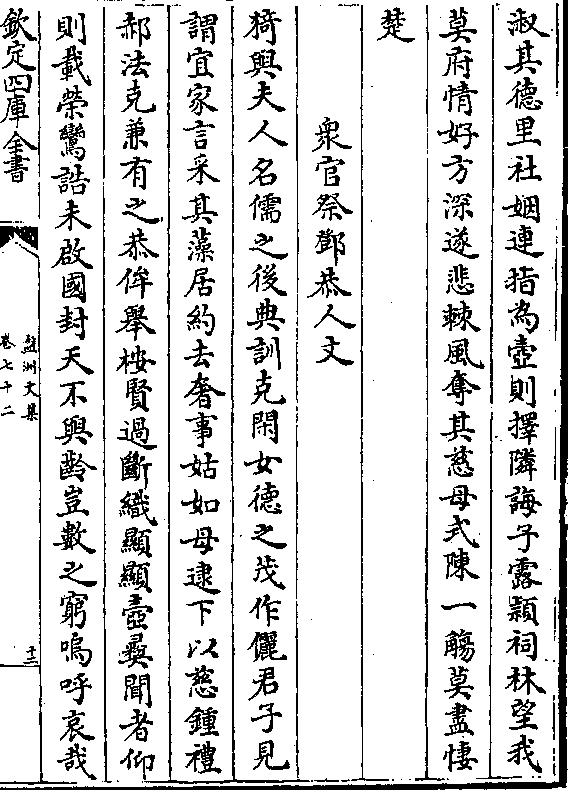 淑其德里社姻連指為壼則擇隣誨子露穎祠林望我
莫府情好方深遂悲棘風奪其慈母式陳一觴莫盡悽
楚
衆官祭鄧恭人文
猗與夫人名儒之後典訓克閑女德之茂作儷君子見
謂宜家言采其藻居約去奢事姑如母逮下以慈鍾禮
郝法克兼有之恭侔舉桉賢過斷織顯顯壼彝聞者仰
則載榮鸞誥未啟國封天不與齡豈數之窮嗚呼哀哉
欽定四庫全書
盤洲文集
卷七十二
十三